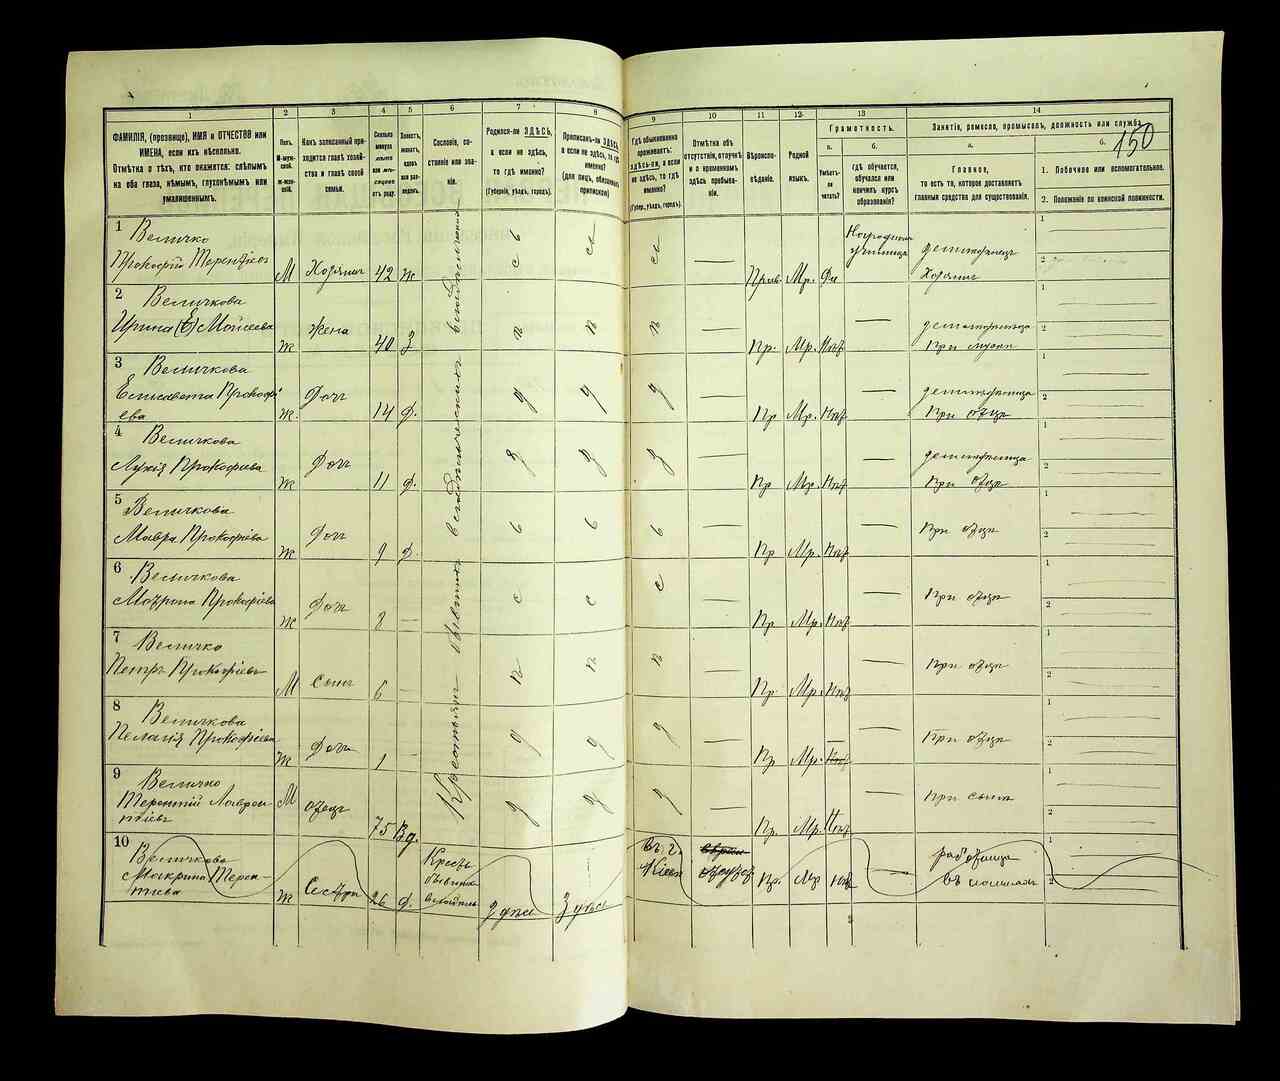 150
1 2 3 4 5 6 7 8 9 10 11 12 13 14
ФАМИЛІЯ, (прозвище), ИМЯ и ОТЧЕСТВО или
ИМЕНА, если ихъ нѣсколько.
Отмѣтка о тѣхъ, кто окажется: слѣпымъ
на оба глаза, нѣмымъ, глухонѣмымъ или
умалишеннымъ.
Полъ.
М-мужской.
Ж-женскій.
Какъ записанный при-
ходится главѣ хозяй-
ства и главѣ своей
семьи.
Сколько
минуло
лѣтъ
или мѣ-
сяцевъ
отъ роду.
Холостъ,
женатъ,
вдовъ
или раз-
веденъ.
Сословіе, со-
стояніе или зва-
ніе.
Родился-ли ЗДѢСЬ,
а если не здѣсь,
то гдѣ именно?
(Губернія, уѣздъ, городъ).
Приписанъ-ли ЗДѢСЬ,
а если не здѣсь, то гдѣ
именно?
(для лицъ, обязанныхъ
припиской)
Гдѣ обыкновенно
проживаетъ:
здѣсь-ли, а если
не здѣсь, то гдѣ
именно?
(Губер., уѣздъ, городъ).
Отмѣтка объ
отсутствіи, отлучкѣ
и о временномъ
здѣсь пребыва-
ніи.
Вѣроиспо-
вѣданіе.
Родной
языкъ.
Грамотность.
а.
Умѣетъ-
ли
читать?
б.
гдѣ обучается,
обучался или
кончилъ курсъ
образованія?
Занятіе, ремесло, промыселъ, должность или служба.
а.
Главное,
то есть то, которое доставляетъ
главныя средства для существованія.
б.
1. Побочное или вспомогательное.
2. Положеніе по воинской повинности.
Крестьянъ бывшихъ
1 Величко
Прокофій
М Хозяинъ 42 Ж
— Прав. Мр. Да
Народныя училища
Хозяинъ
2 Величкова
Ирина (Е) Моисеева
Ж Жена 40 З
— Пр. Мр. Нѣтъ —
При мужѣ
3 Величкова
Елисавета Прокофі
ева
Ж. Дочь 14 Д.
— Пр Мр. Нѣтъ —
При отцѣ
4 Величкова
Лукія Прокофіева
Ж Дочь 11 Д.
— Пр Мр. Нѣтъ —
При отцѣ
5 Величкова
Мавра Прокофіева
Ж Дочь 9 Д.
— Пр Мр. Нѣтъ —
При отцѣ
6 Величкова
Матрона Прокофіева
Ж Дочь 8 —
— Пр Мр. Нѣтъ —
При отцѣ
7 Величко
Петръ Прокофіевъ
М Сынъ 6 —
— Пр. Мр. Нѣтъ —
При отцѣ
8 Величкова
Пелагія Прокофіева
Ж Дочь 1
— Пр Мр. —
При отцѣ
9 Величко
Терентій Лаврен
тіевъ
М отецъ 75 Вд.
— Пр. Мр. Нѣтъ —
При сынѣ
10 Величкова
Макрина Терен-
тіева
Ж Сестра 26 Д.
въ г.
Кіевѣ
Пр. Мр Нѣтъ —